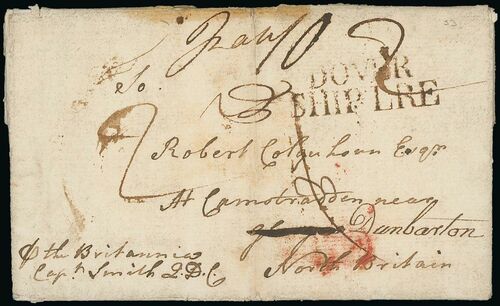 To.
DOVER
SHIP LRE
2
Robert Colquhoun Esqr
At Camstradden near
Dunbarton
North Britain
p the Britannia
Capt Smith Q.D.C